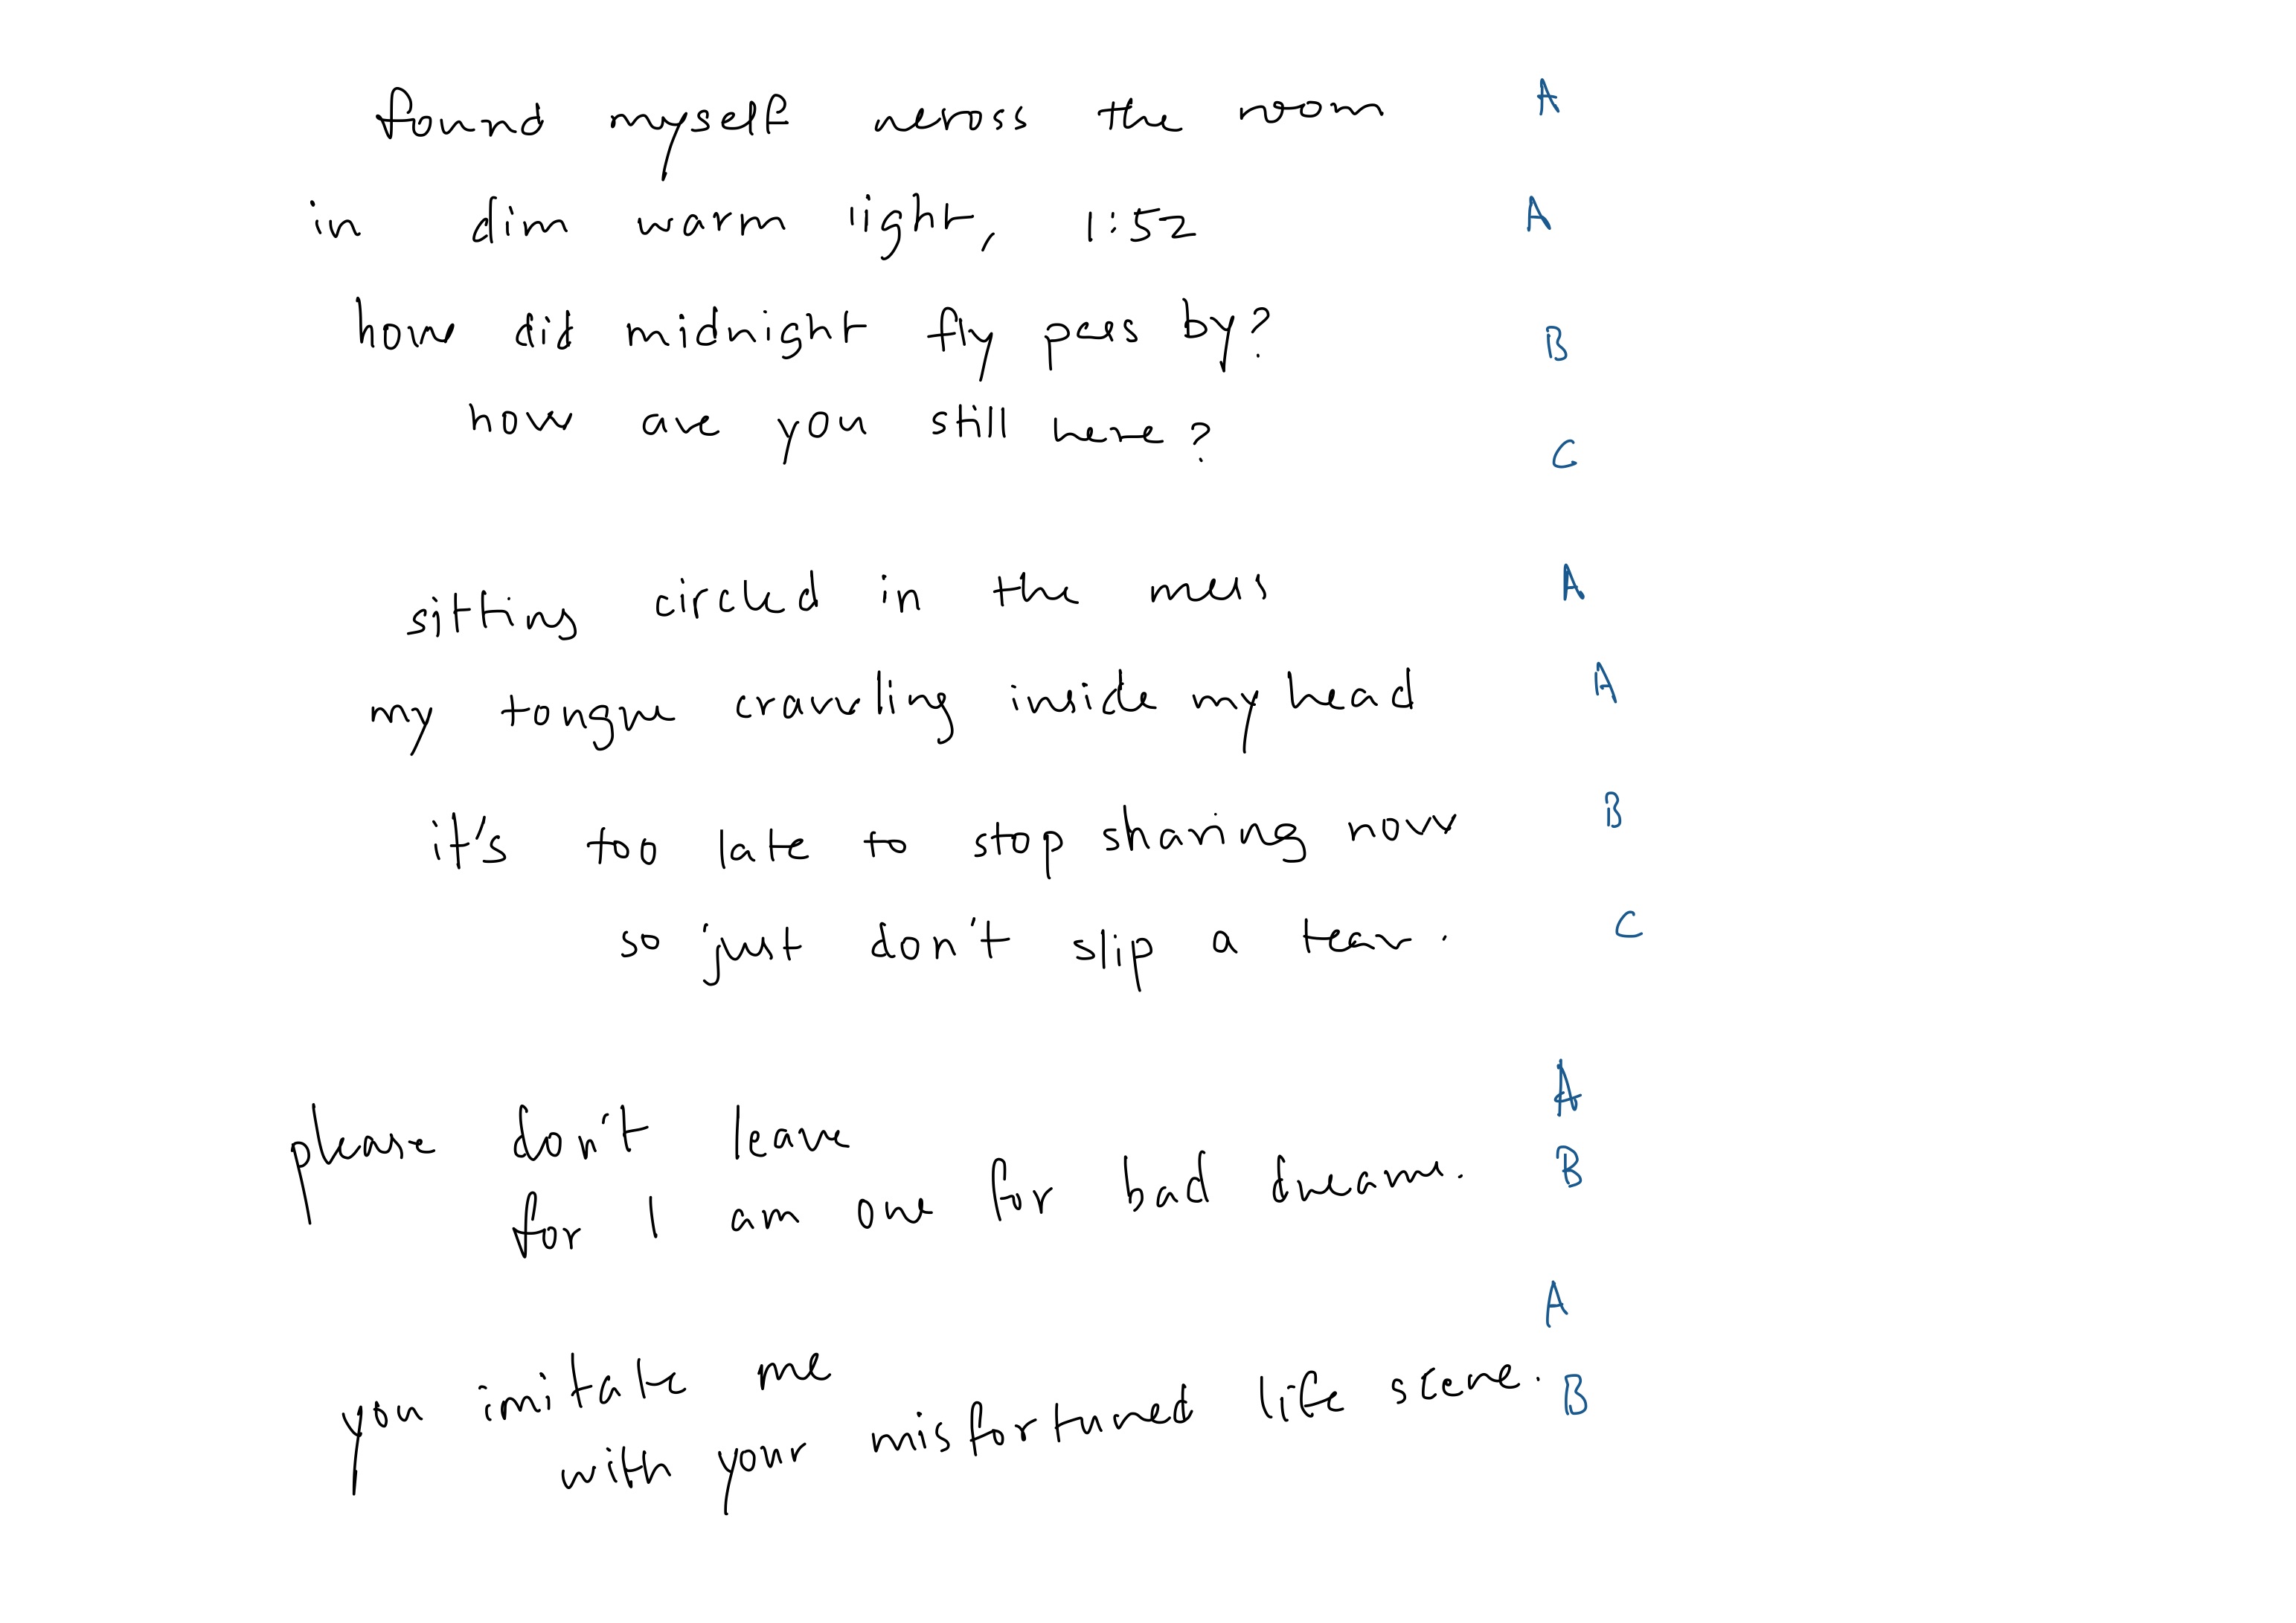 found myself across the room A
in dim warm light, 1:52 A
how did midnight fly pass by? B
how are you still here? C
sitting circled in the mess A
my tongue crawling inside my head A
it's too late to stop sharing now B
so just don't slip a tear. C
please don't leave A
for I am one for bad dreams. B
you imitate me A
with your misfortuned life scene. B